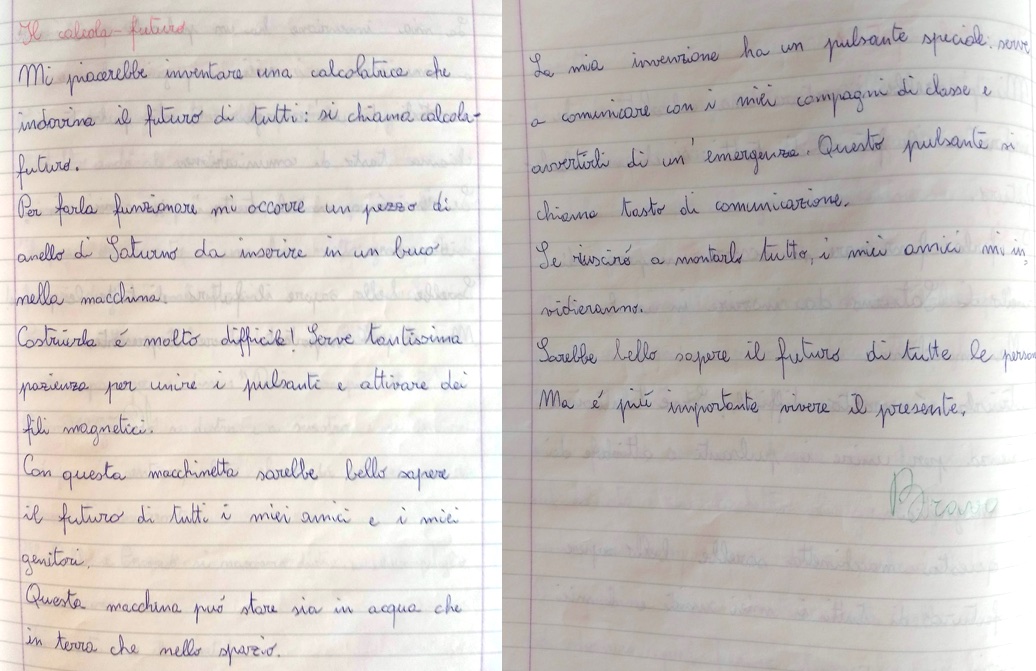 Il calcola-futuro
Mi piacerebbe inventare una calcolatrice che
indovina il futuro di tutti: si chiama calcola-
futuro.
Per farla funzionare mi occorre un pezzo di
anello di Saturno da inserire in un buco
nella macchina.
Costruirla é molto difficile! Serve tantissima
pazienza per unire i pulsanti e attivare dei
fili magnetici.
Con questa macchinetta sarebbe bello sapere
il futuro di tutti i miei amici e i miei
genitori.
Questa macchina puó stare sia in acqua che
in terra che nello spazio.
La mia invenzione ha un pulsante speciale: serve
a comunicare con i miei compagni di classe e
avvertirli di un'emergenza. Questo pulsante si
chiama tasto di comunicazione.
Se riusciró a montarlo tutto, i miei amici mi in,
vidieranno.
Sarebbe bello sapere il futuro di tutte le person
Ma é piú importante vivere il presente.
Bravo